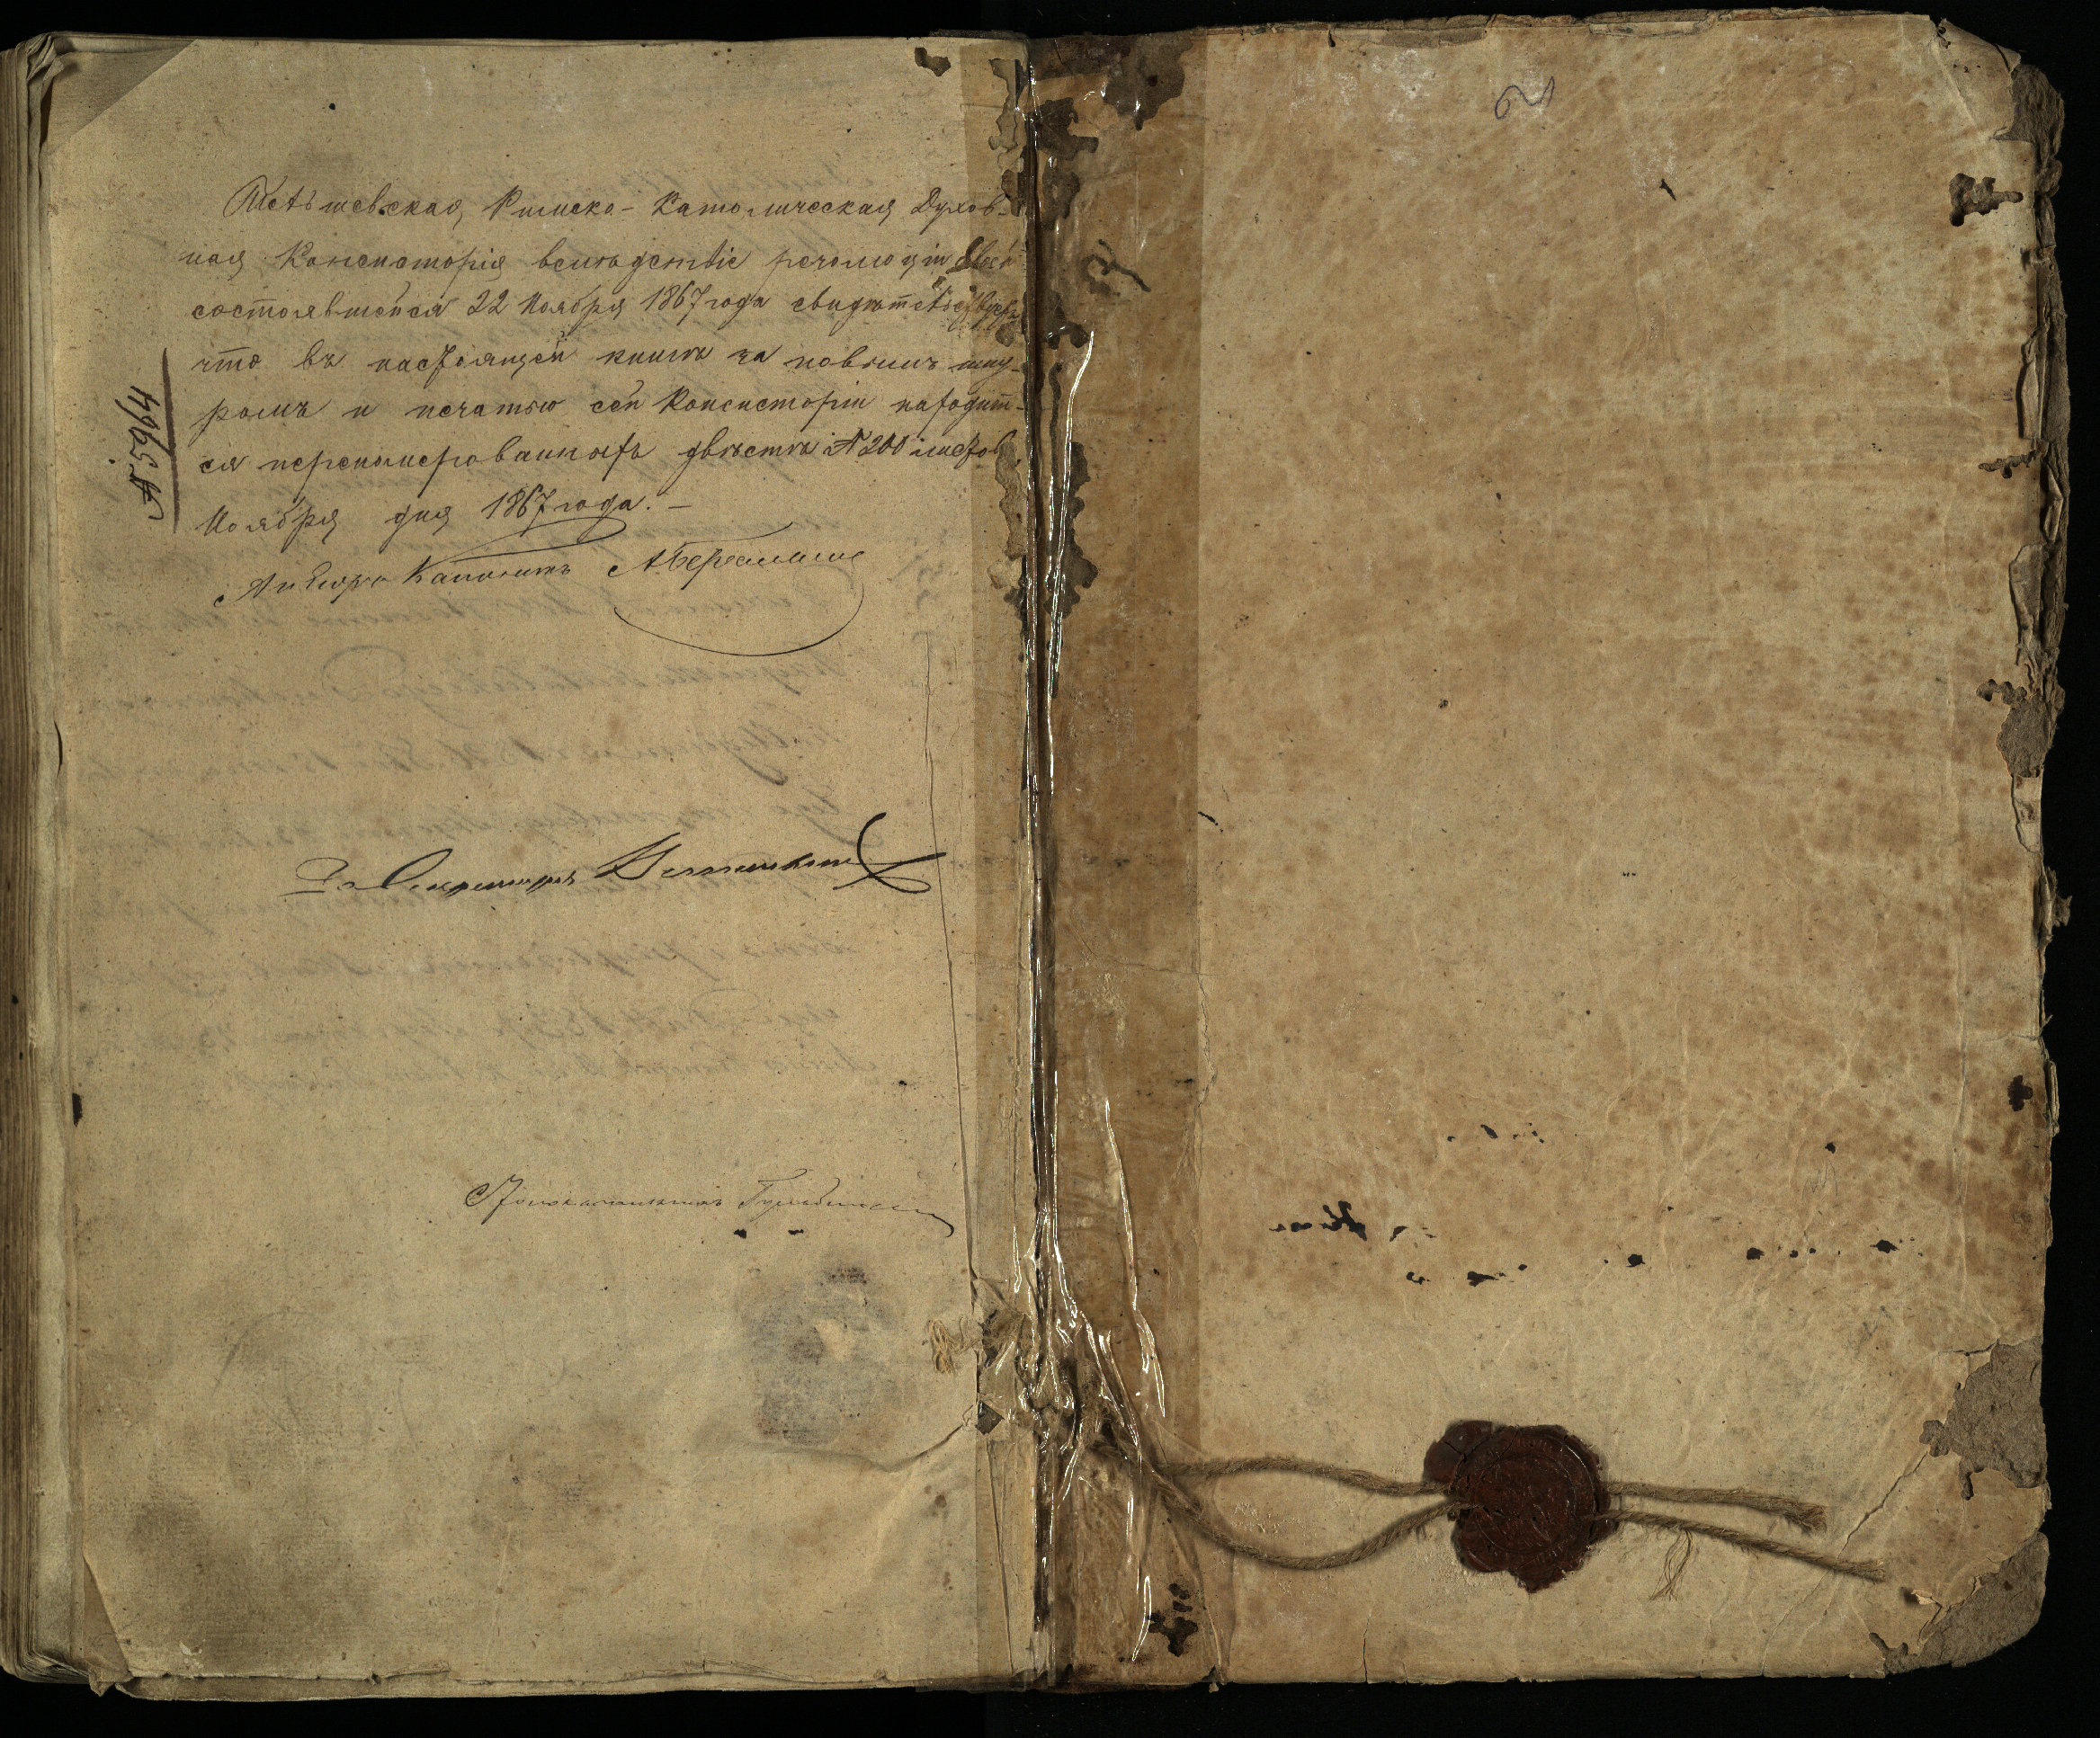 Тельшевская, Римско-Католическая Духов-
ная Консисторія вслѣдствіе резолюціи своей
состоявшейся 22 Ноября 1867 года свидѣтельствуетъ
что въ настоящей книгѣ за повымъ шну-
ромъ и печатью сей Консисторіи находит-
ся перенумерованныхъ двѣсти № 200 листовъ.
Ноября дня 1867 года. –
№ 5964
За Секретаря
Столоначальникъ